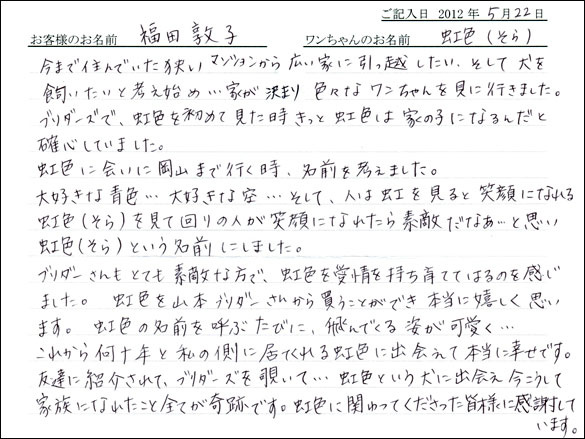 ご記入日 2012年5月22日
お客様のお名前 福田敦子 ワンちゃんのお名前 虹色(そら)
今まで住んでいた狭いマンションから広い家に引っ越したい、そして犬を
飼いたいと考え始め…家が決まり色々なワンちゃんを見に行きました。
ブリダーズで、虹色を初めて見た時きっと虹色は家の子になるんだと
確心していました。
虹色に会いに岡山まで行く時、名前を考えました。
大好きな青色…大好きな空…そして、人は虹を見ると笑顔になれる
虹色(そら)を見て回りの人が笑顔になれたら素敵だなぁ…と思い
虹色(そら)という名前にしました。
ブリダーさんもとても素敵な方で、虹色を愛情を持ち育ててはるのを感じ
ました。虹色を山本ブリダーさんから買うことができ本当に嬉しく思い
ます。虹色の名前を呼ぶたびに、飛んでる姿が可愛く…
これから何十年と私の側に居てくれる虹色に出会えて本当に幸せです。
友達に紹介されて、ブリダーズを覗いて…虹色という犬に出会え今こうして
家族になれたこと全てが奇跡です。虹色に関わってくださった皆様に感謝して
います。